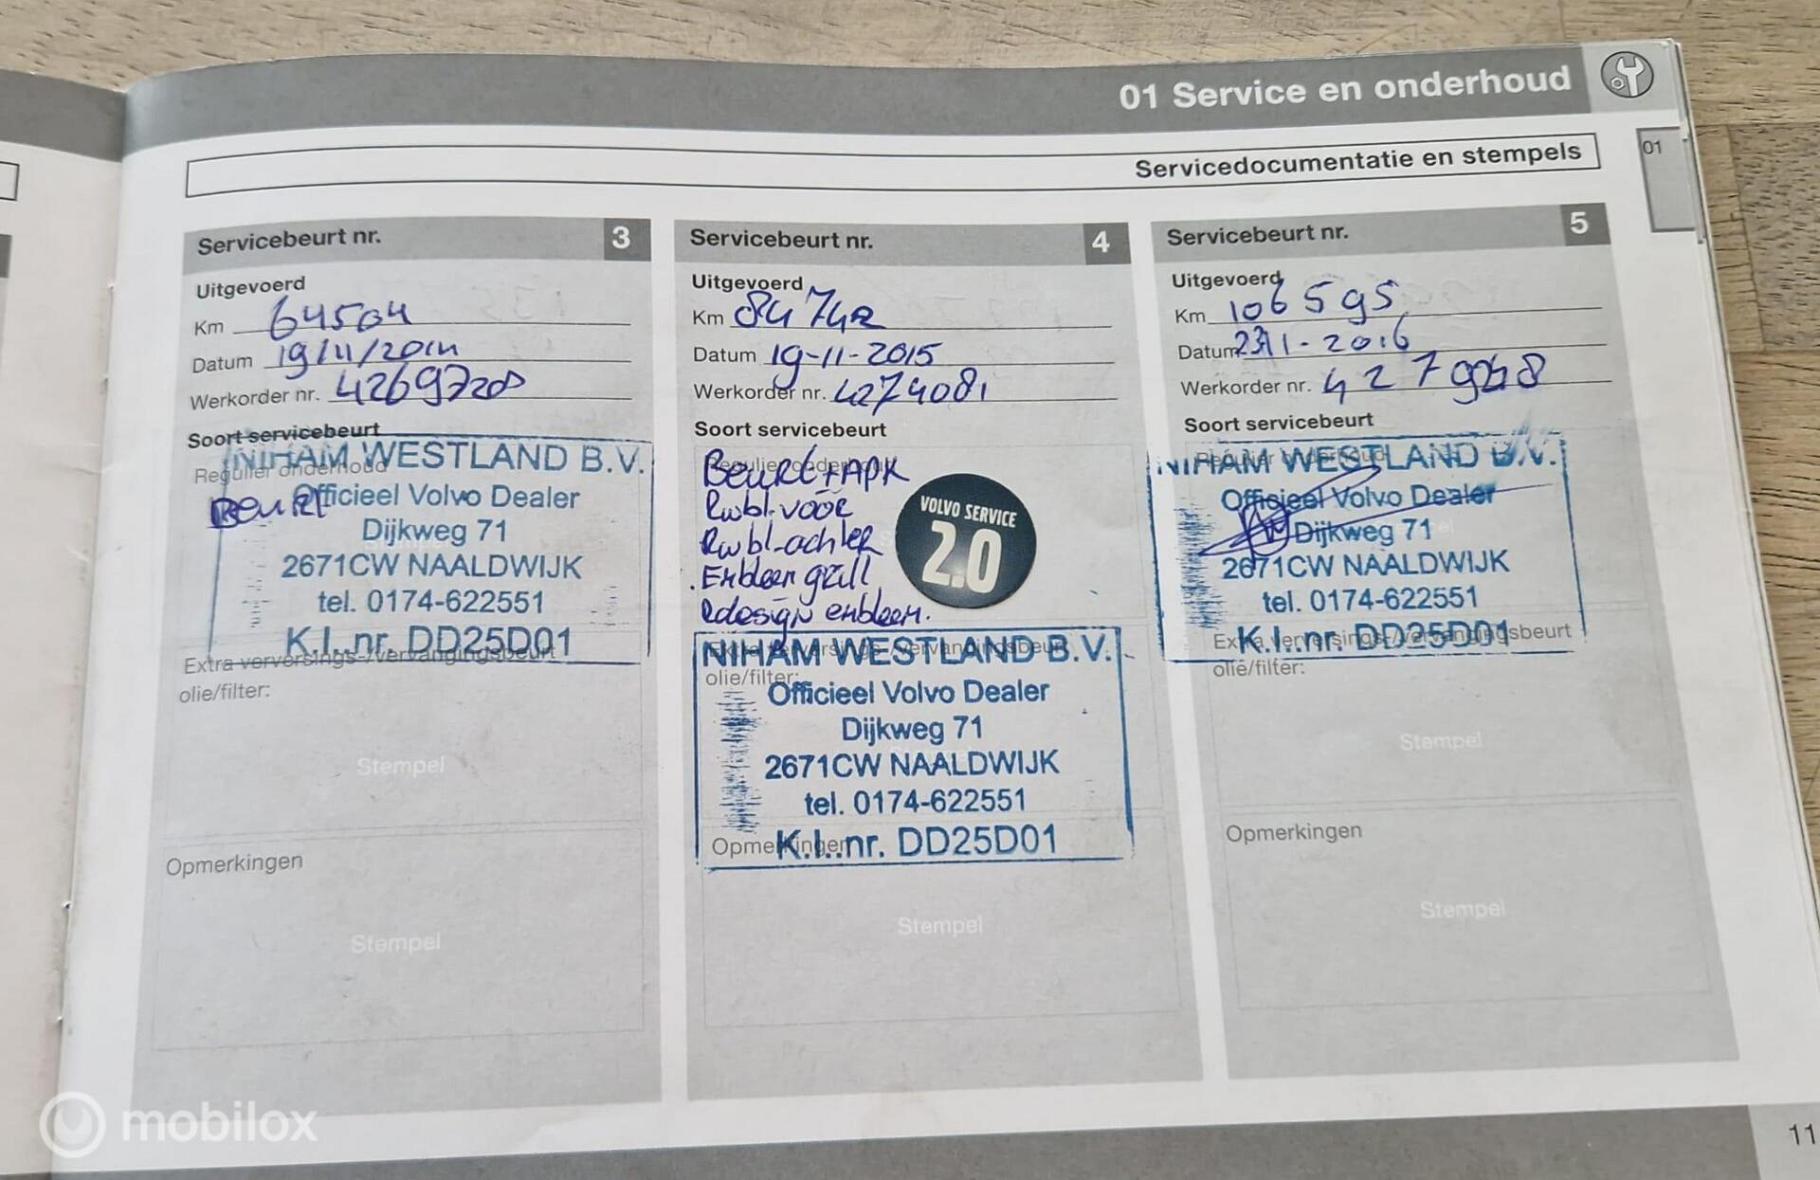 01 Service en onderhoud
Servicedocumentatie en stempels
01
Servicebeurt nr. 3
Uitgevoerd
Km 64504
Datum 19/11/2014
Werkorder nr. 4269720
Soort servicebeurt
Regulier onderhoud
Beurt
NIHAM WESTLAND B.V.
Officieel Volvo Dealer
Dijkweg 71
2671CW NAALDWIJK
tel. 0174-622551
K.I..nr. DD25D01
Extra verversings-/vervangingsbeurt
olie/filter:
Stempel
Opmerkingen
Stempel
Servicebeurt nr. 4
Uitgevoerd
Km 84742
Datum 19-11-2015
Werkorder nr. 4274081
Soort servicebeurt
Regulier onderhoud
Beurt + APK
Rwbl-voor
Rwbl-achter
Embleem grill
Rdesign embleem.
VOLVO SERVICE
2.0
NIHAM WESTLAND B.V.
olie/filter:
Officieel Volvo Dealer
Dijkweg 71
2671CW NAALDWIJK
tel. 0174-622551
Opmerkingen
K.I..nr. DD25D01
Stempel
Servicebeurt nr. 5
Uitgevoerd
Km 106595
Datum 23-11-2016
Werkorder nr.
Soort servicebeurt
NIHAM WESTLAND B.V.
Officieel Volvo Dealer
Dijkweg 71
2671CW NAALDWIJK
tel. 0174-622551
K.I..nr. DD25D01
Extra verversings-/vervangingsbeurt
olie/filter:
Stempel
Opmerkingen
Stempel
11
mobilox